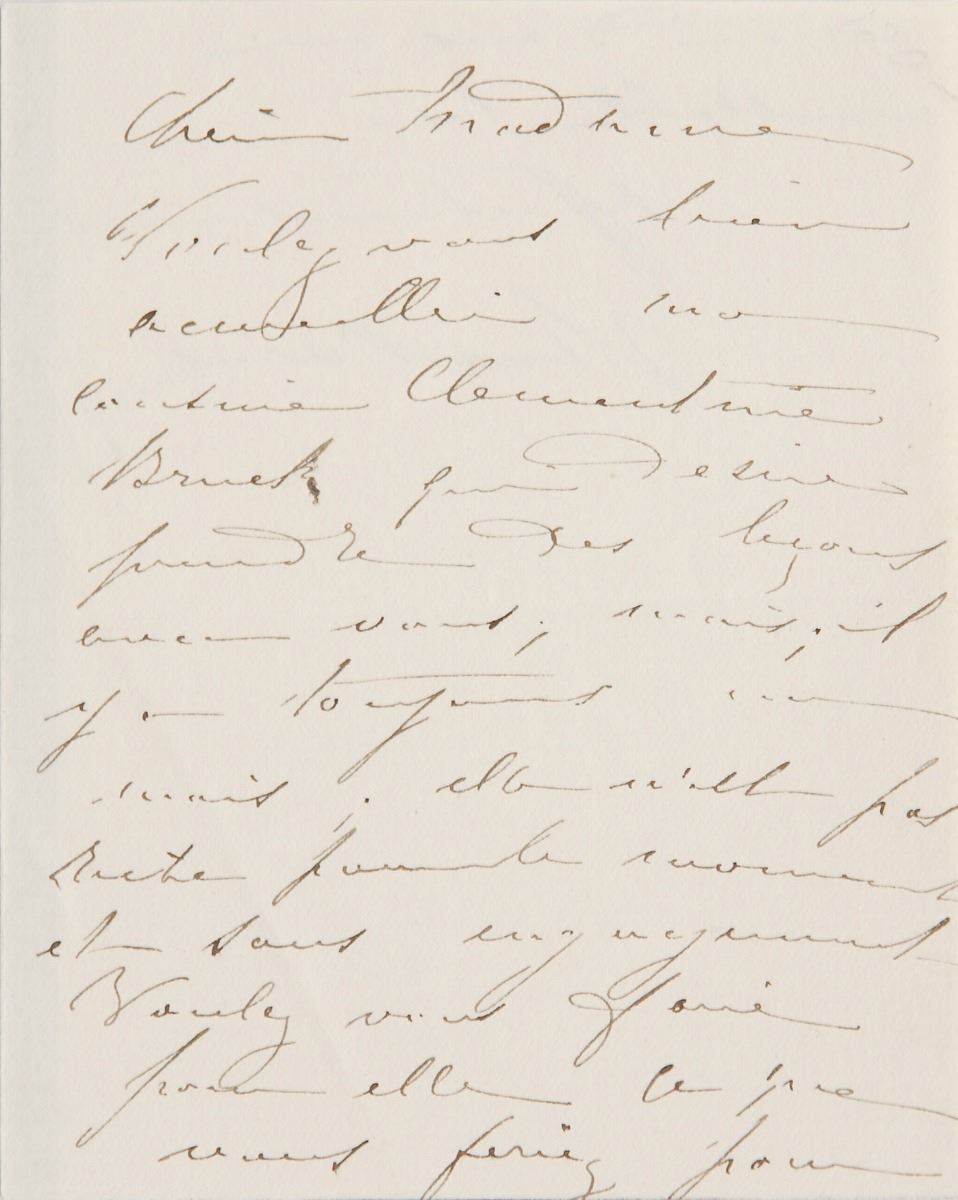 Chère Madame
Voulez vous bien
accueillir ma
cousine Clementine
Bruck qui desire
prendre des leçons
avec vous, mais, il
y a toujours un
mais, elle n'est pas
riche pour le moment
et sans engagement
Voulez vous faire
pour elle ce que
vous feriez pour